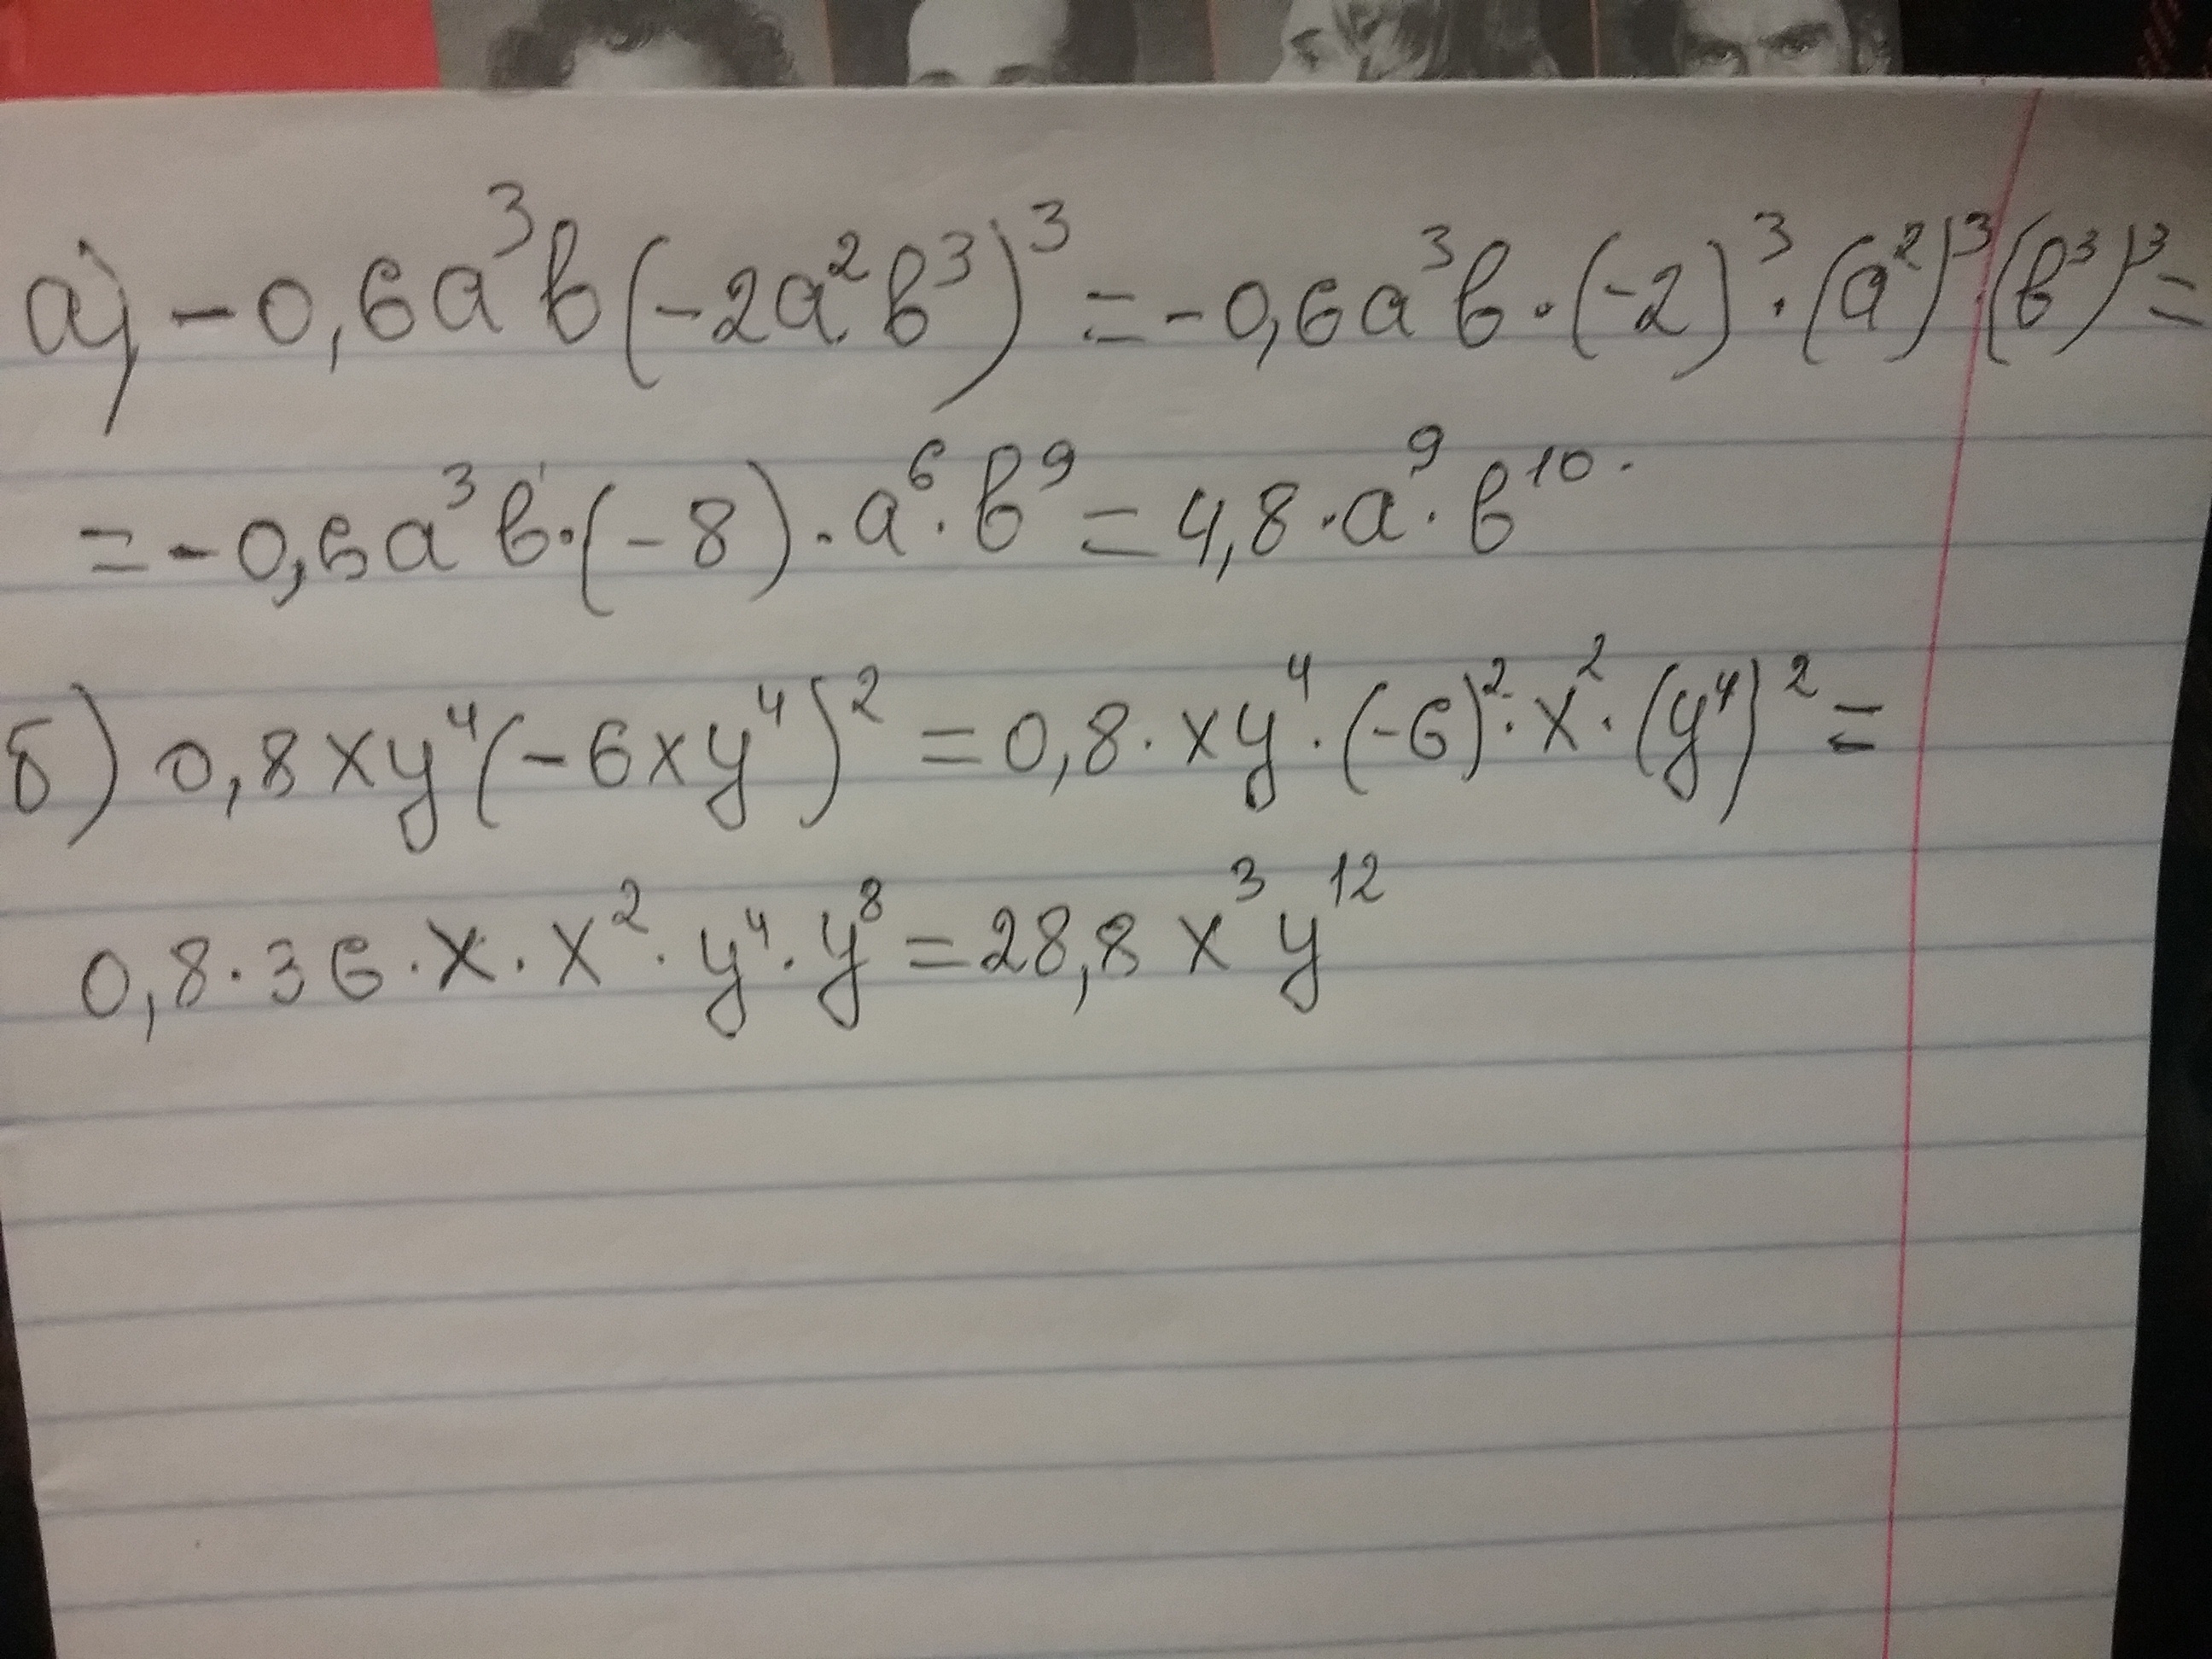 а) -0,6a³b(-2a²b³)³ = -0,6a³b·(-2)³·(a²)³·(b³)³=
= -0,6a³b·(-8)·a⁶·b⁹ = 4,8·a⁹·b¹⁰.
б) 0,8xy⁴(-6xy⁴)² = 0,8·xy⁴·(-6)²·x²·(y⁴)² =
0,8·36·x·x²·y⁴·y⁸ = 28,8 x³y¹²